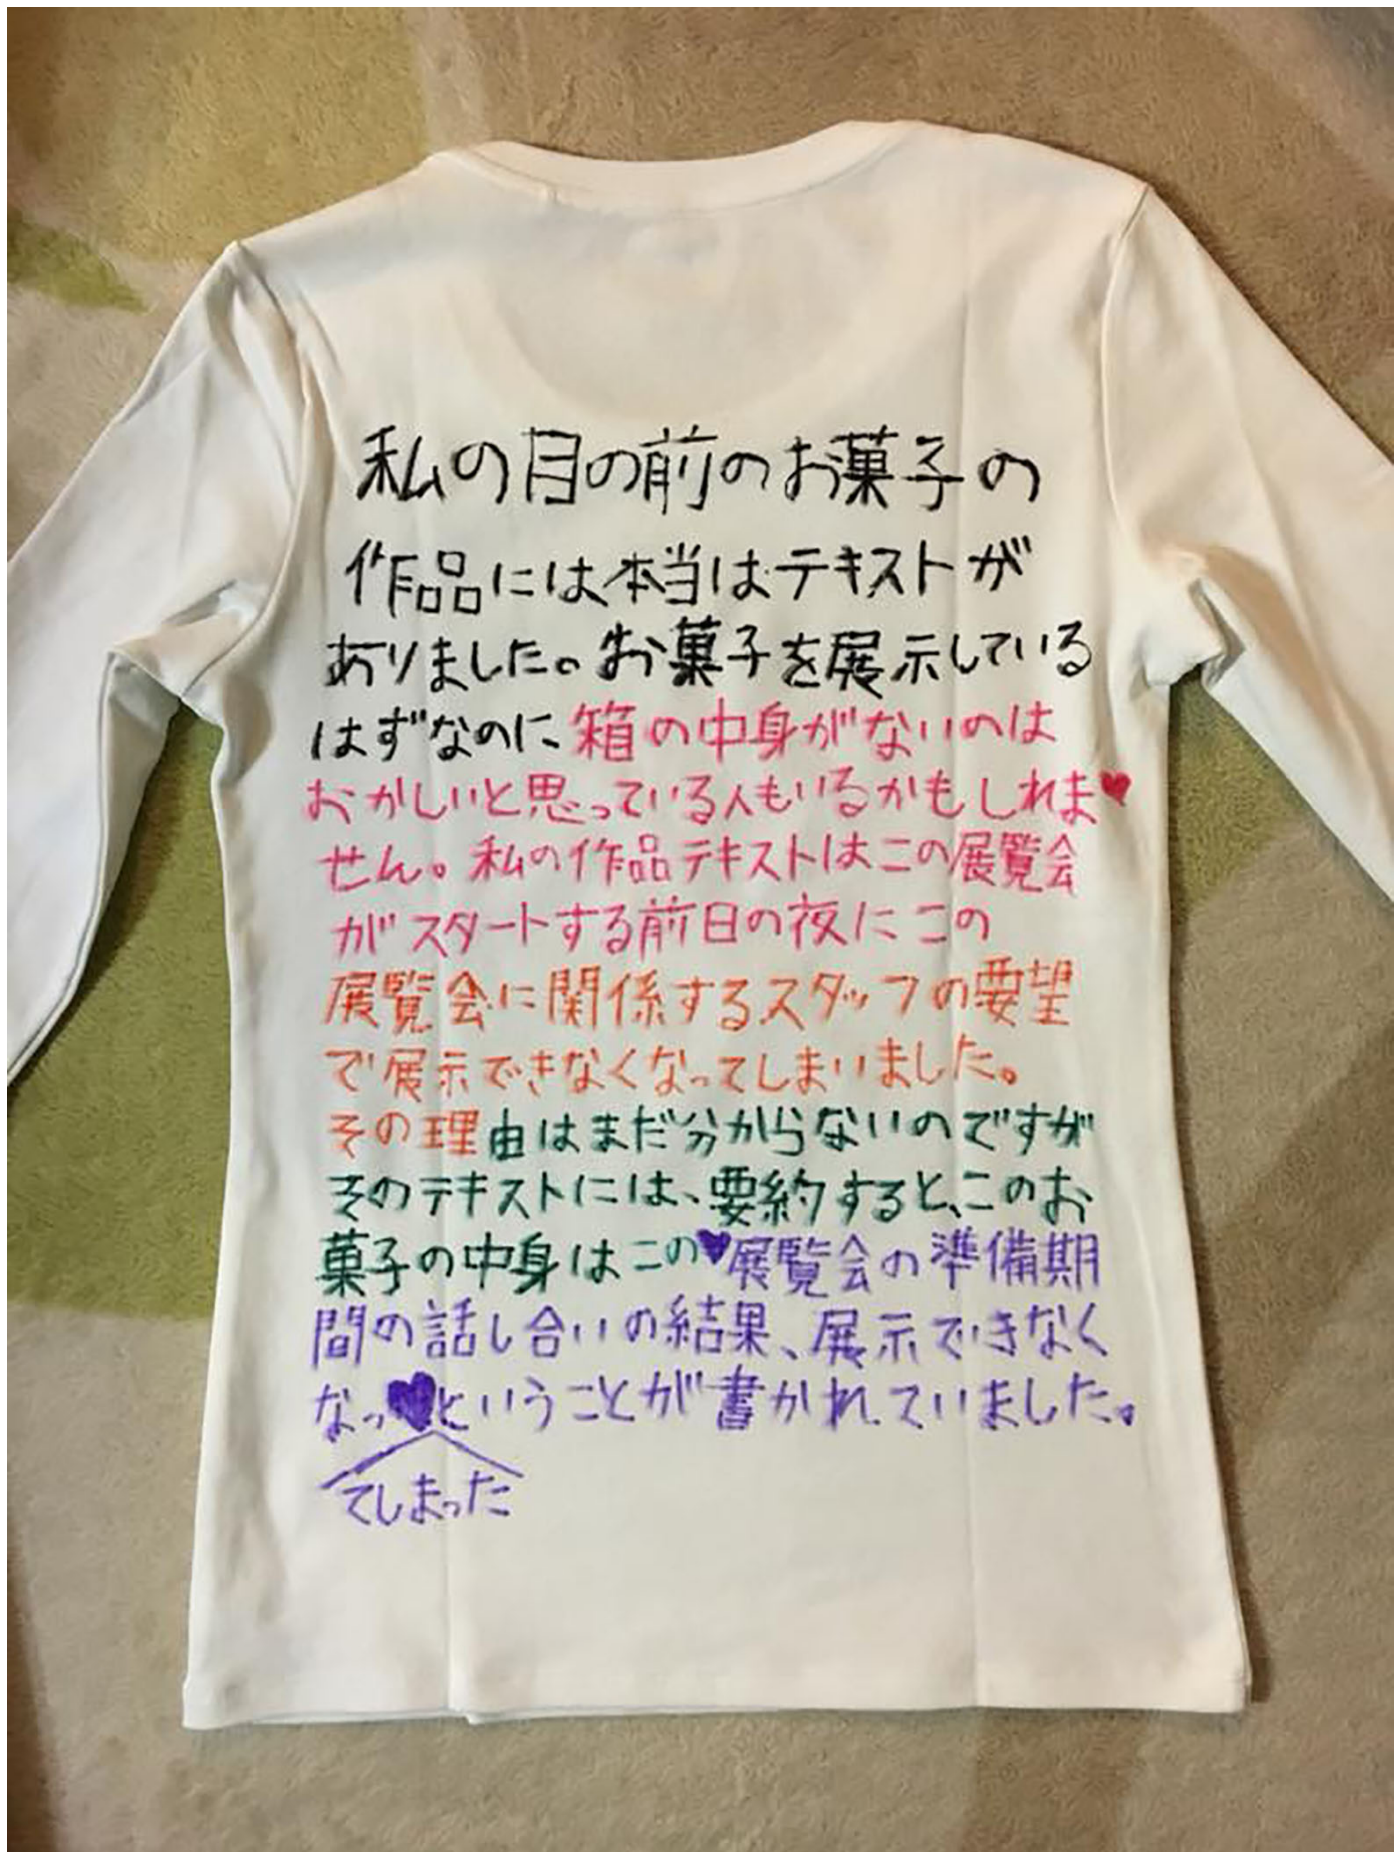 私の目の前のお菓子の
作品には本当はテキストが
ありました。お菓子を展示している
はずなのに箱の中身がないのは
おかしいと思っている人もいるかもしれま♥
せん。私の作品テキストはこの展覧会
がスタートする前日の夜にこの
展覧会に関係するスタッフの要望
で展示できなくなってしまいました。
その理由はまだ分からないのですが
そのテキストには、要約すると、このお
菓子の中身はこの♥展覧会の準備期
間の話し合いの結果、展示できなく
なっ♥ということが書かれていました。
てしまった